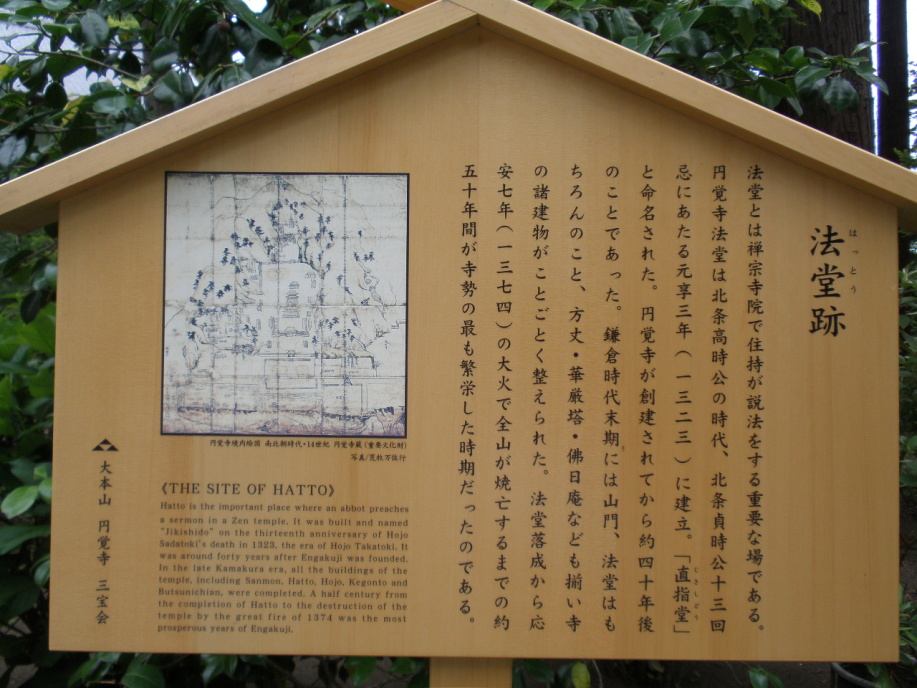 はっとう
法堂跡
法堂とは禅宗寺院で住持が説法をする重要な場である。
円覚寺法堂は北条高時公の時代、北条貞時公十三回
忌にあたる元亨三年(一三二三)に建立。「直指堂」
じきしどう
と命名された。円覚寺が創建されてから約四十年後
のことであった。鎌倉時代末期には山門、法堂はも
ちろんのこと、方丈・華厳塔・佛日庵なども揃い寺
の諸建物がことごとく整えられた。法堂落成から応
安七年(一三七四)の大火で全山が焼亡するまでの約
五十年間が寺勢の最も繁栄した時期だったのである。
円覚寺境内絵図 南北朝時代・14世紀 円覚寺蔵(重要文化財)
写真/荒牧万佐行
《THE SITE OF HATTO》
Hatto is the important place where an abbot preaches
a sermon in a Zen temple. It was built and named
"Jikishido" on the thirteenth anniversary of Hojo
Sadatoki's death in 1323, the era of Hojo Takatoki. It
was around forty years after Engakuji was founded.
In the late Kamakura era, all the buildings of the
temple, including Sanmon, Hatto, Hojo, Kegonto and
Butsunichian, were completed. A half century from
the completion of Hatto to the destruction of the
temple by the great fire of 1374 was the most
prosperous years of Engakuji.
大本山 円覚寺 三宝会